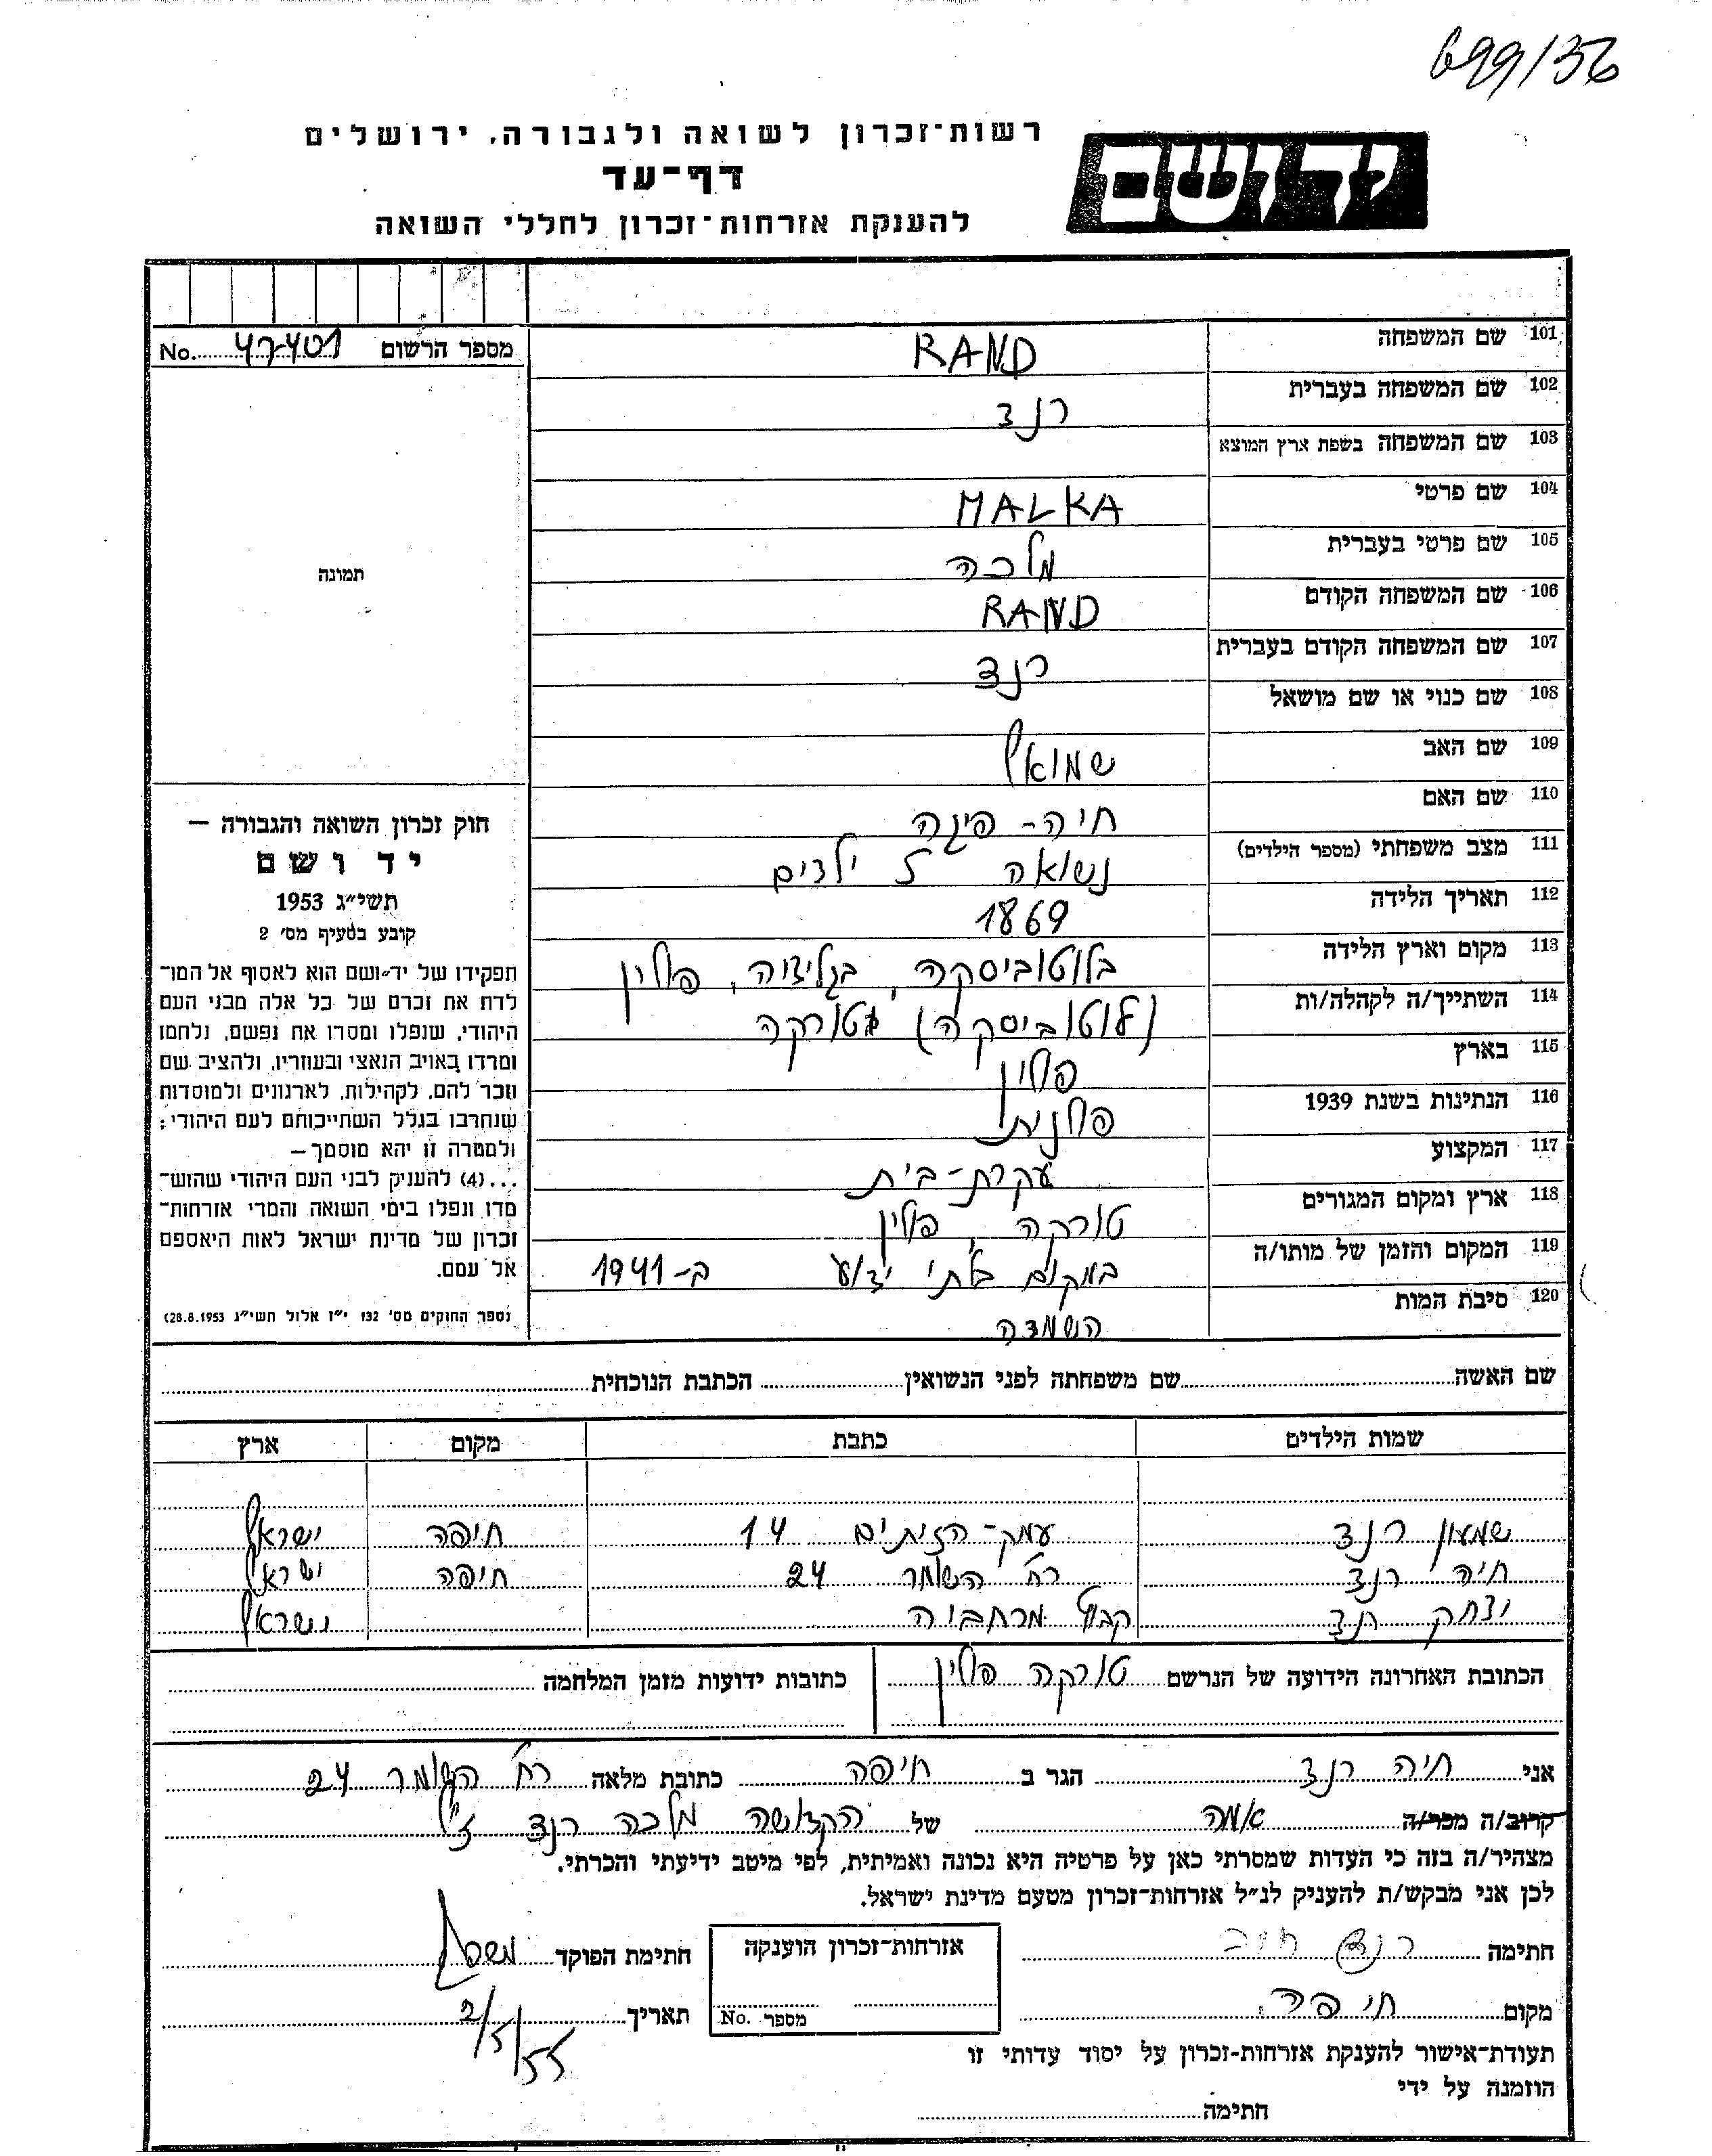 699/36
רשות־זכרון לשואה ולגבורה, ירושלים
יד ושם
דף־עד
להענקת אזרחות־זכרון לחללי השואה
מספר הרשום No. 47-401
תמונה
חוק זכרון השואה והגבורה —
יד ושם
תשי״ג 1953
קובע בסעיף מס׳ 2
תפקידו של יד־ושם הוא לאסוף אל המו־
לדת את זכרם של כל אלה מבני העם
היהודי, שנפלו ומסרו את נפשם, נלחמו
ומרדו באויב הנאצי ובעוזריו, ולהציב שם
וזכר להם, לקהילות, לארגונים ולמוסדות
שנחרבו בגלל השתייכותם לעם היהודי;
ולמטרה זו יהא מוסמך —
...(4) להעניק לבני העם היהודי שהוש־
מדו ונפלו בימי השואה והמרי אזרחות־
זכרון של מדינת ישראל לאות היאספם
אל עמם.
(ספר החוקים מס׳ 132 י״ז אלול תשי״ג 28.8.1953)
101 שם המשפחה RAND
102 שם המשפחה בעברית רנד
103 שם המשפחה בשפת ארץ המוצא
104 שם פרטי MALKA
105 שם פרטי בעברית מלכה
106 שם המשפחה הקודם RAND
107 שם המשפחה הקודם בעברית רנד
108 שם כנוי או שם מושאל
109 שם האב שמואל
110 שם האם חיה - פיגה
111 מצב משפחתי (מספר הילדים) נשואה 5 ילדים
112 תאריך הלידה 1869
113 מקום וארץ הלידה בלוטוביסקה, בגליציה, פולין
114 השתייך/ה לקהלה/ות (לוטוביסקה) טורקה
115 בארץ פולין
116 הנתינות בשנת 1939 פולנית
117 המקצוע עקרת-בית
118 ארץ ומקום המגורים טורקה, פולין
119 המקום והזמן של מותו/ה במקום בלתי ידוע ב- 1941
120 סיבת המות השמדה
שם האשה שם משפחתה לפני הנשואין הכתבת הנוכחית
שמות הילדים כתבת מקום ארץ
שמעון רנד עמק-הזיתים 14 חיפה ישראל
חיה רנד רח׳ השומר 24 חיפה ישראל
יצחק רנד קבוץ מרחביה ישראל
הכתובת האחרונה הידועה של הנרשם טורקה פולין כתובות ידועות מזמן המלחמה
אני חיה רנד הגר ב חיפה כתובת מלאה רח׳ השומר 24
קרוב/ה מכר/ה אמה של הקדושה מלכה רנד ז״ל
מצהיר/ה בזה כי העדות שמסרתי כאן על פרטיה היא נכונה ואמיתית, לפי מיטב ידיעתי והכרתי.
לכן אני מבקש/ת להעניק לנ״ל אזרחות־זכרון מטעם מדינת ישראל.
חתימה רנד חיה אזרחות־זכרון הוענקה חתימת הפוקד
מקום חיפה. מספר No. תאריך 2/5/55
תעודת־אישור להענקת אזרחות-זכרון על יסוד עדותי זו
הוזמנה על ידי
חתימה